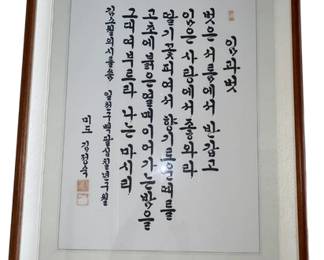 임과 벗
벗은 서름에서 반갑고
임은 사랑에서 좋아라
딸기꽃 피여서 향기로운 때를
고초에 붉은 열매 익어가는 밤을
그대여 부르라 나는 마시리
김소월의 시를 씀 일천구백팔십 년 구월
미도 김정숙